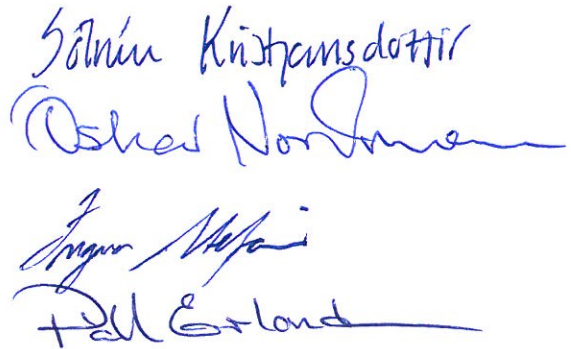 Sólrún Kristjansdottir
Oskar Nordmann
Ingvar Stefáns
Páll Erland